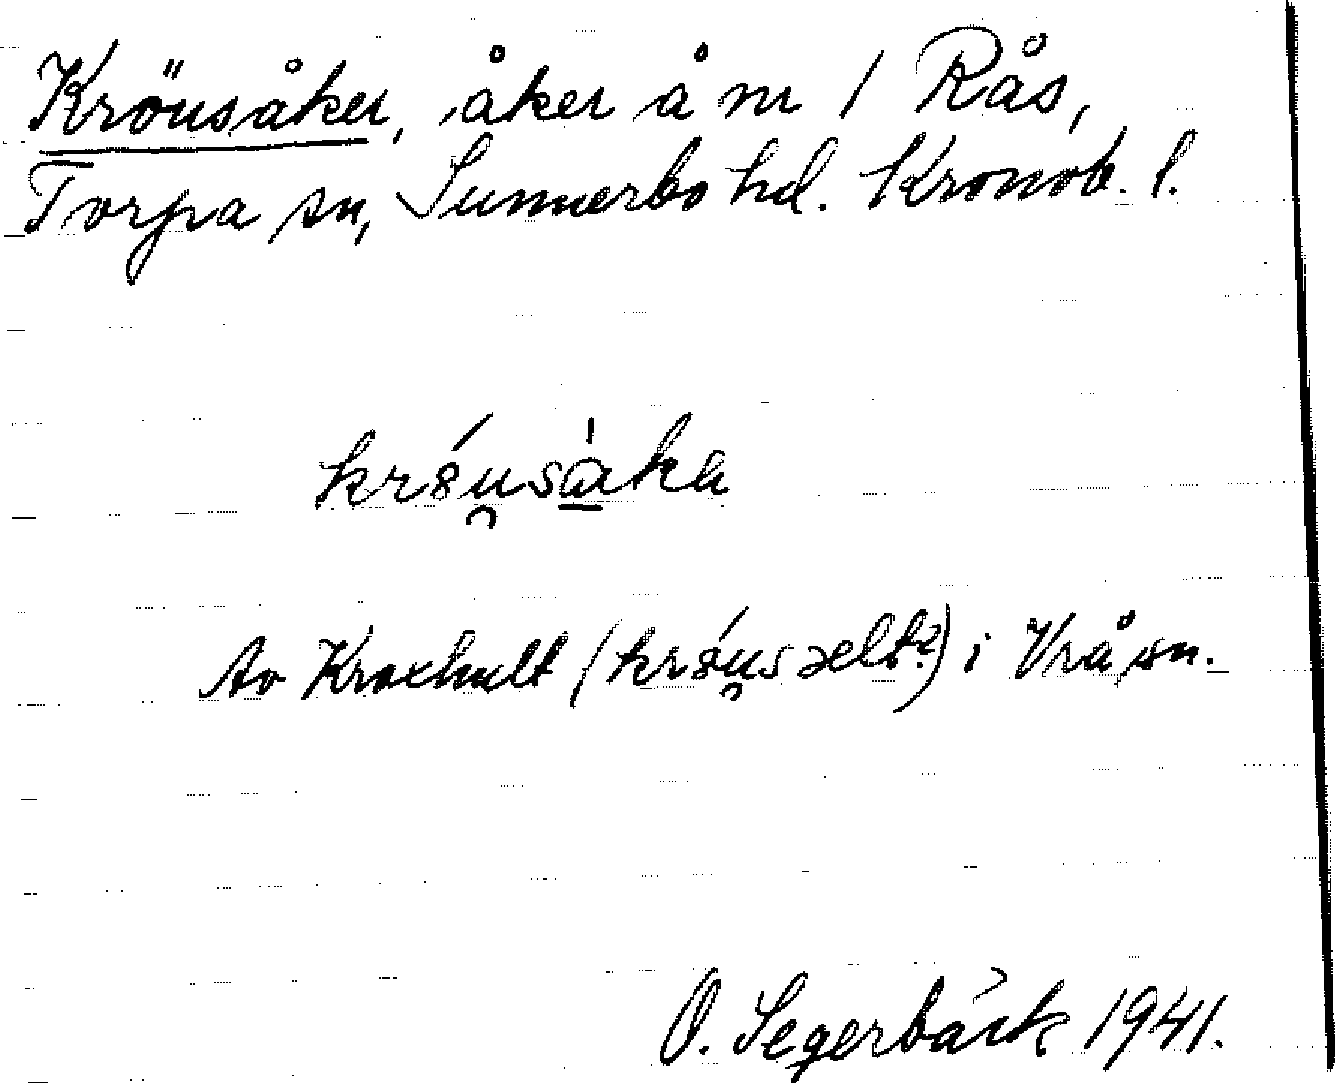 Kröusåker, åker å nr 1 Rås,
Torpa sn, Sunnerbo hd. Kronob. l.
króusàka
Av Kroxhult (króusəelt?) i Vrå sn.
O. Segerbäck 1941.